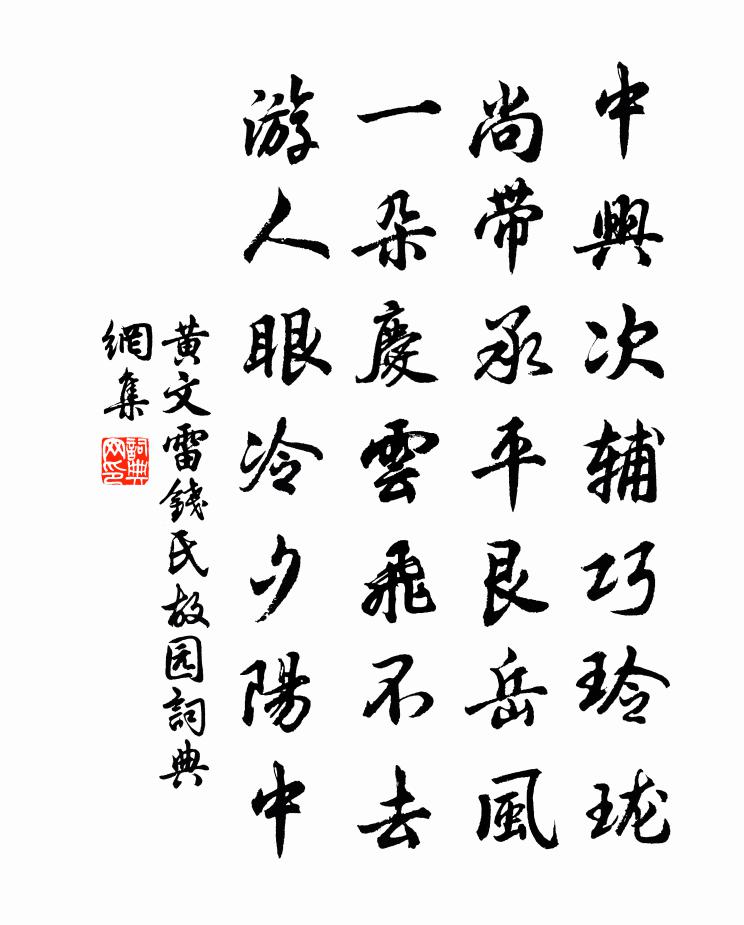 中興次辅巧玲珑
尚带承平艮岳風
一朵慶雲飛不去
游人眼冷夕陽中
黄文雷錢氏故园詞典
網集
詞典
网印